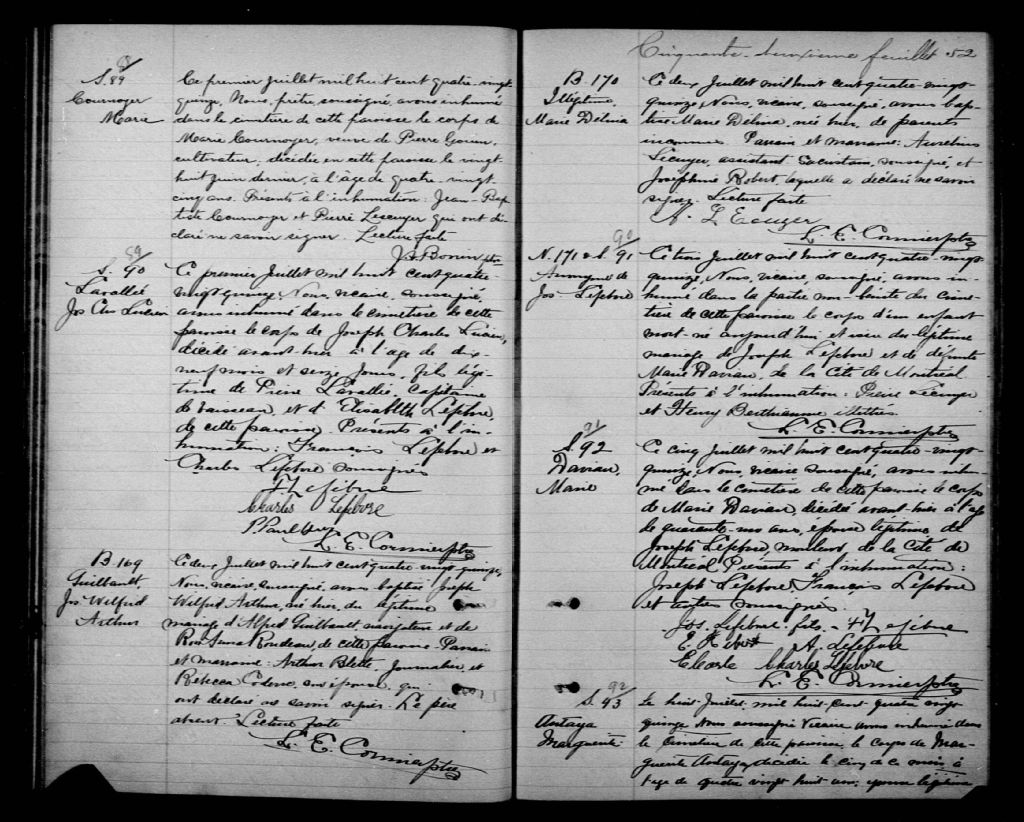 S. 89
Cournoyer
Marie
Ce premier Juillet mil huit cent quatre-vingt
quinze, Nous, prêtre, soussigné, avons inhumé
dans le cimetière de cette paroisse le corps de
Marie Cournoyer, veuve de Pierre
cultivateur, décédée en cette paroisse le vingt
huit juin dernier, à l'âge de quatre-vingt-
cinq ans. Présents à l'inhumation: Jean-Bap
tiste Cournoyer et Pierre Lécuyer qui ont dé
claré ne savoir signer. Lecture faite
Bonin ptre
89
S. 90
Lavallée
Jos Chs Lucien
Ce premier Juillet mil huit cent quatre-
vingt quinze, Nous, vicaire, soussigné,
avons inhumé dans le cimetière de cette
paroisse le corps de Joseph Charles Lucien,
décédé avant-hier à l'âge de dix-
neuf mois et seize jours, fils légi-
time de Pierre Lavallée, Capitaine
de vaisseau, et d'Elisabeth Lefebvre,
de cette paroisse. Présents à l'in-
humation: François Lefebvre et
Charles Lefebvre soussignés
Charles Lefebvre
L. E. Cormier ptre
B. 169
Guilbault
Jos Wilfrid
Arthur
Ce deux Juillet mil huit cent quatre-vingt quinze,
Nous, vicaire, soussigné, avons baptisé Joseph
Wilfrid Arthur, né hier, du légitime
mariage d'Alfred Guilbault navigateur et de
Rose Anna Rondeau, de cette paroisse. Parrain
et marraine: Arthur Journalier, et
Rebecca son épouse, qui
ont déclaré ne savoir signer. Le père
absent. Lecture faite
L. E. Cormier ptre
Cinquante-deuxième feuillet 52
B. 170
Illégitime
Marie Délina
Ce deux Juillet mil huit cent quatre-vingt
quinze, Nous, vicaire, soussigné, avons bap-
tisé Marie Délina, née hier, de parents
inconnus. Parrain et marraine: Aurélius
Lécuyer, assistant sacristain, soussigné, et
Joséphine Robert, laquelle a déclaré ne savoir
signer. Lecture faite
L. E. Cormier ptre
90
N. 171 & S. 91
Anonyme de
Jos. Lefebvre
Ce trois Juillet mil huit cent quatre-vingt
quinze, Nous, vicaire, soussigné, avons in-
humé dans la partie non-bénite du cime-
tière de cette paroisse le corps d'un enfant
mort-né aujourd'hui et issu du légitime
mariage de Joseph Lefebvre et de défunte
Marie Davian, de la Cité de Montréal.
Présents à l'inhumation: Pierre Lécuyer
et Henry Berthiaume illettrés
L. E. Cormier ptre
91
S. 92
Davian,
Marie
Ce cinq Juillet mil huit cent quatre-vingt-
quinze, Nous, vicaire soussigné, avons inhu-
mé dans le cimetière de cette paroisse le corps
de Marie Davian, décédée avant-hier à l'âge
de quarante-un ans, épouse légitime de
Joseph Lefebvre, mouleur, de la Cité de
Montréal Présents à l'inhumation:
Joseph Lefebvre, François Lefebvre
et autres soussignés.
Jos. Lefebvre fils
A. Lefebvre
Charles Lefebvre
L. E. Cormier ptre
92
S. 93
Antaya
Marguerite
Le huit Juillet mil huit-cent quatre vingt
quinze Nous soussigné Vicaire avons inhumé dans
le cimetière de cette paroisse, le corps de Mar-
guerite Antaya, décédée le cinq de ce mois, à
l'âge de quatre vingt huit ans, épouse légitime